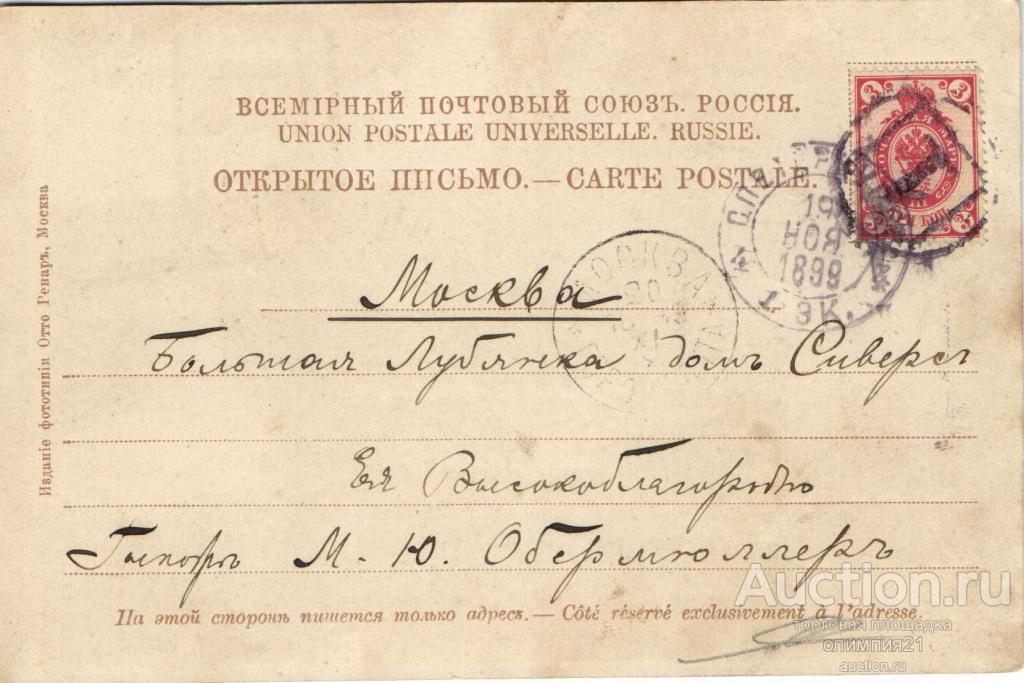 ВСЕМІРНЫЙ ПОЧТОВЫЙ СОЮЗЪ. РОССІЯ.
UNION POSTALE UNIVERSELLE. RUSSIE.
ОТКРЫТОЕ ПИСЬМО.—CARTE POSTALE.
3 3
3 3
ТРИ КОП.
19
НОЯ
1899
1 ЭК.
МОСКВА
20
XI
Москва
Большая Лубянка домъ Сиверсъ
Ея Высокоблагородію
М. Ю. Обермюллеръ
На этой сторонѣ пишется только адресъ.—Côté réservé exclusivement à l'adresse.
Изданіе фототипіи Отто Ренаръ, Москва
Auction.ru
торговая площадка
олимпия21
auction.ru